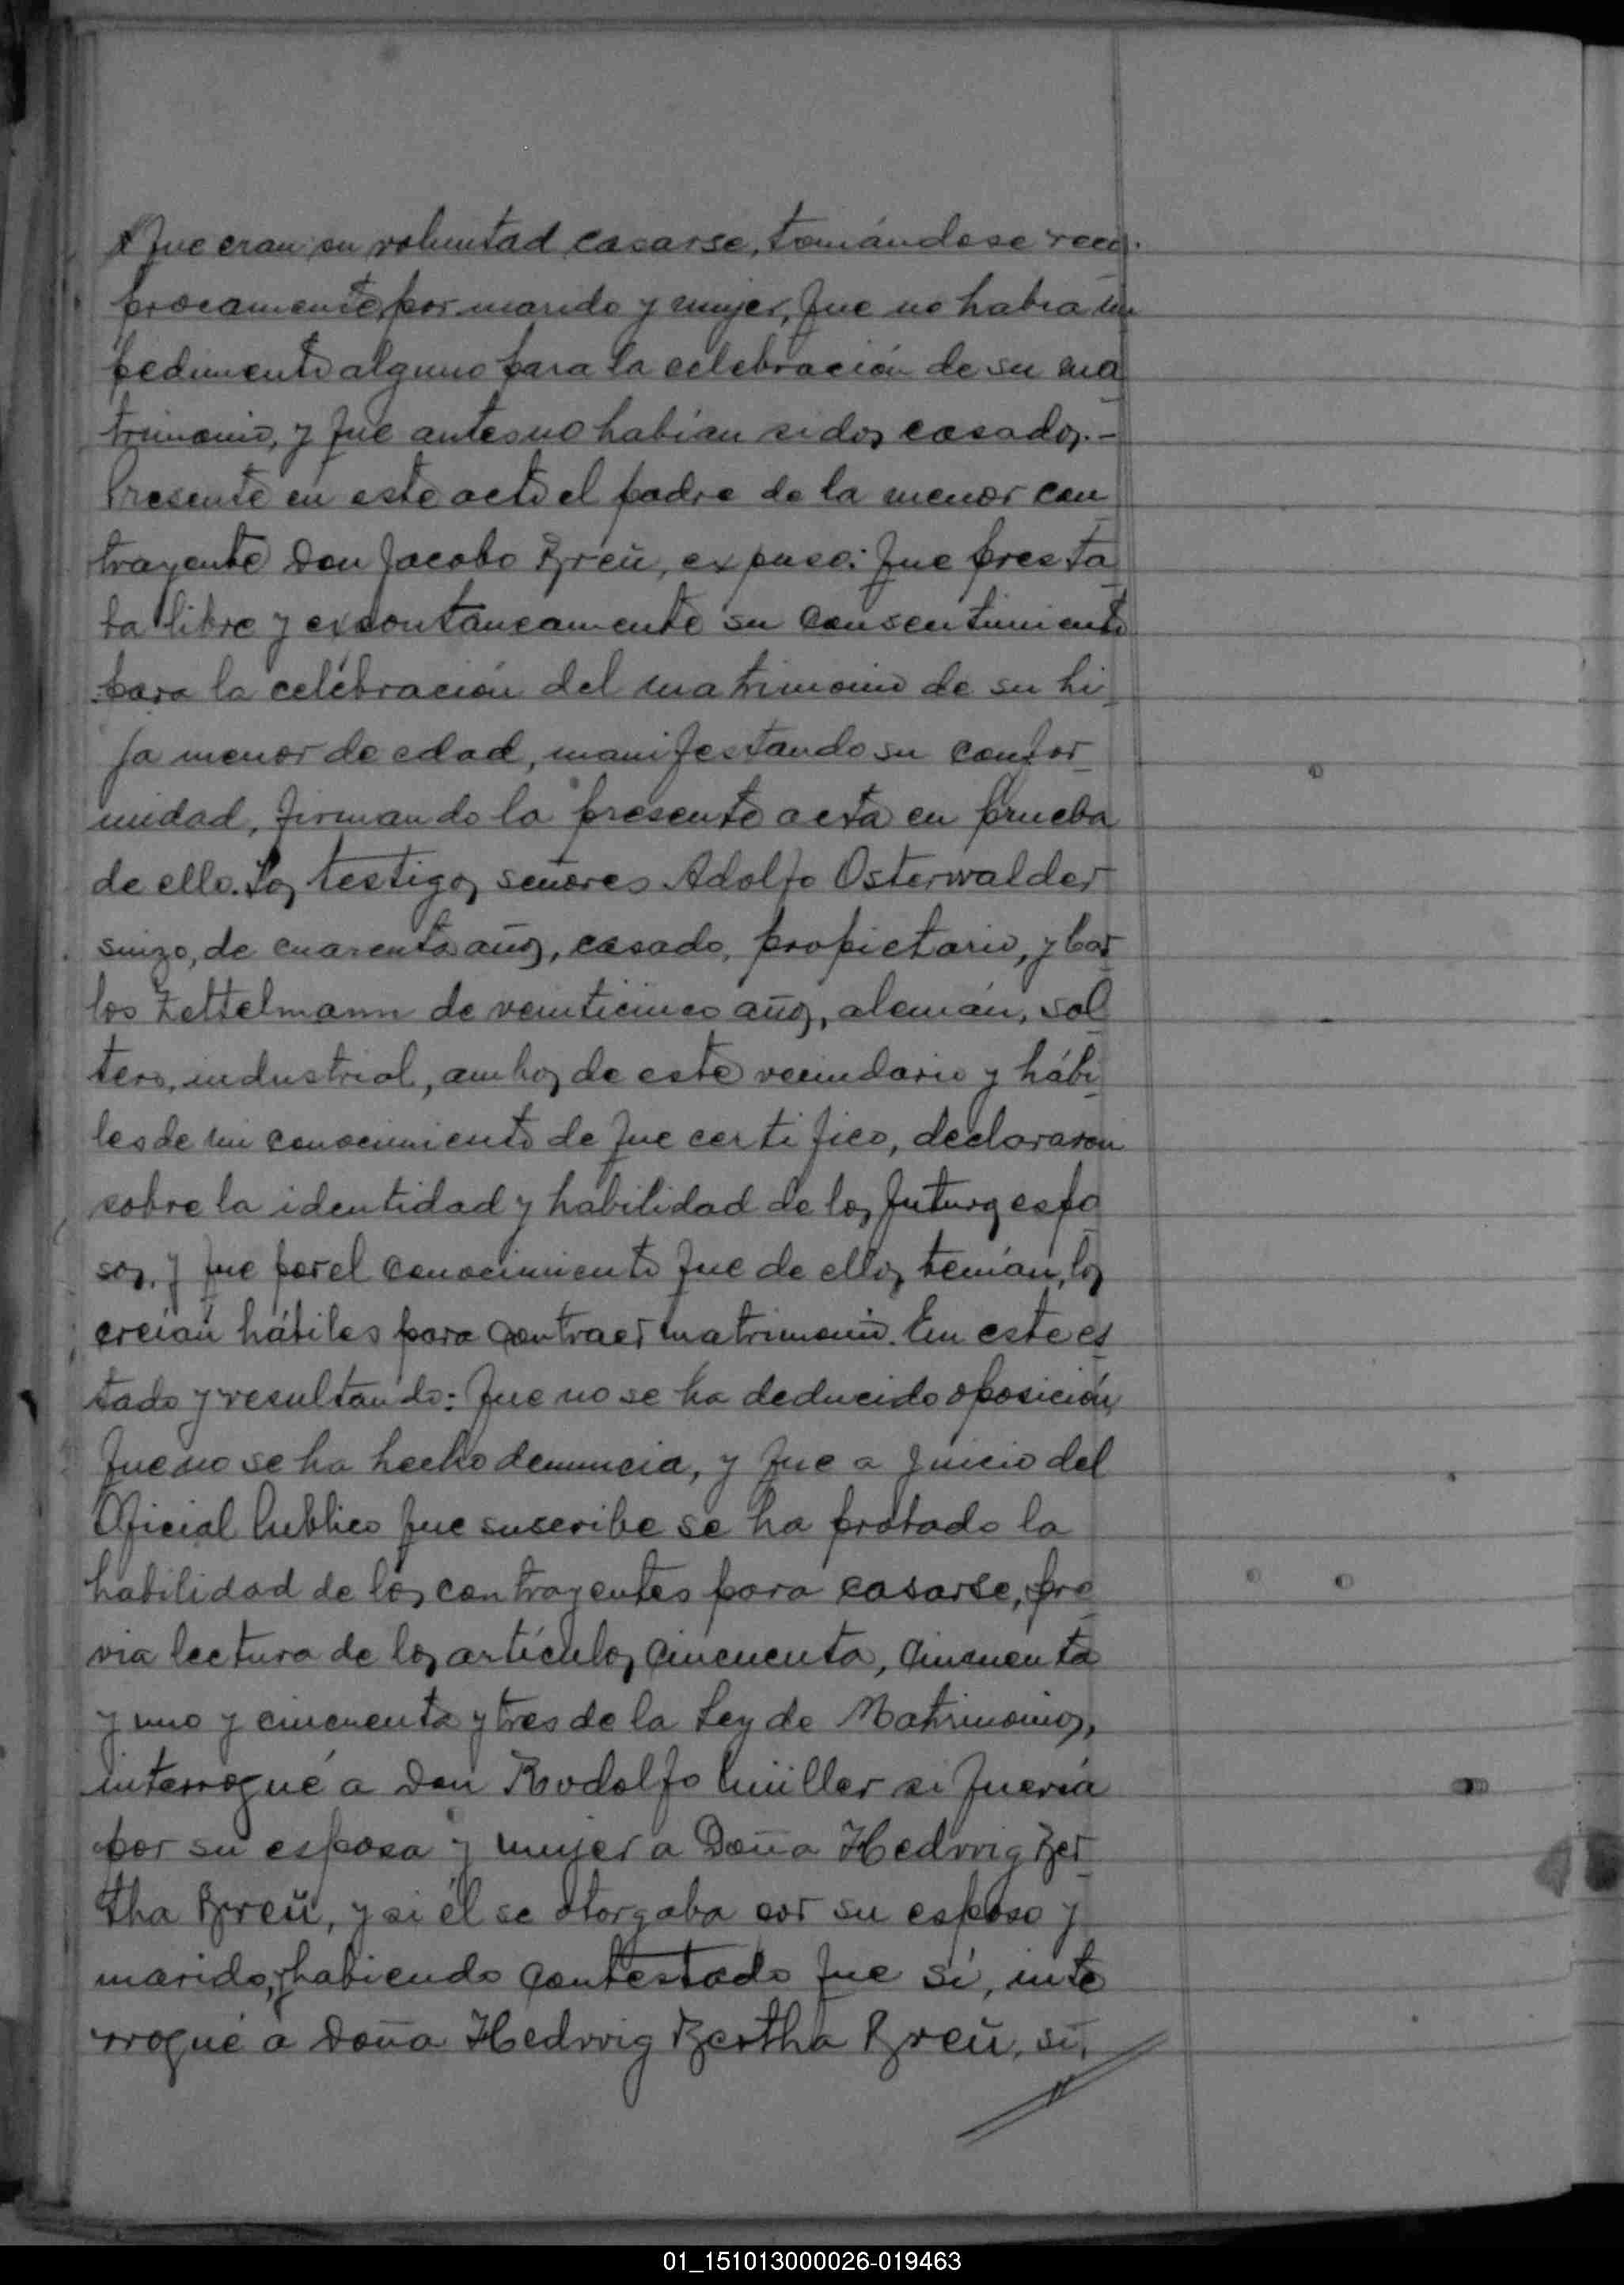 Que eran su voluntad casarse, tomándose recí-
procamente por marido y mujer, que no habia im
pedimento alguno para la celebración de su ma
trimonio, y que antes no habían sidos casados.-
Presente en este acto el padre de la menor con
trayente Don Jacobo Breü, expuso: que presta
ba libre y expontaneamente su consentimiento
para la celebración del matrimonio de su hi
ja menor de edad, manifestando su confor
midad, firmando la presente acta en prueba
de ello. Los testigos señores Adolfo Osterwalder
suizo, de cuarenta años, casado, propietario, y Car
los Zettelmann de veinticinco años, alemán, sol
tero, industrial, ambos de este vecindario y hábi
les de mi conocimiento de que certifico, declararon
sobre la identidad y habilidad de los futuros espo
sos, y que por el conocimiento que de ellos tenían, los
creían hábiles para contraer matrimonio. En este es
tado y resultando: que no se ha deducido oposición,
que no se ha hecho denuncia, y que a juicio del
Oficial Publico que suscribe se ha probado la
habilidad de los contrayentes para casarse, pre
via lectura de los artículos cincuenta, cincuenta
y uno y cincuenta y tres de la Ley de Matrimonios,
interrogué a Don Rodolfo Müller si quería
por su esposa y mujer a Doña Hedwig Ber
tha Breü, y si él se otorgaba por su esposo y
marido, y habiendo contestado que sí, inte
rrogué a Doña Hedwig Bertha Breü, si,
01_151013000026-019463